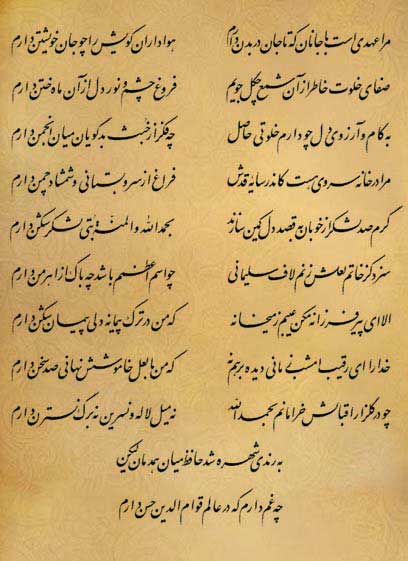 مرا عهدی است با جانان که تا جان در بدن دارم هواداران کویش را چو جان خویشتن دارم
صفای خلوت خاطر از آن شمع چگل جویم فروغ چشم و نور دل از آن ماه ختن دارم
به کام و آرزوی دل چو دارم خلوتی حاصل چه فکر از خبث بدگویان میان انجمن دارم
مرا در خانه سروی هست کاندر سایه قدش فراغ از سرو بستانی و شمشاد چمن دارم
گرم صد لشکر از خوبان به قصد دل کمین سازند بحمد الله و المنه بتی لشکر شکن دارم
سزد کز خاتم لعلش زنم لاف سلیمانی چو اسم اعظمم باشد چه باک از اهرمن دارم
الا ای پیر فرزانه مکن عیبم ز میخانه که من در ترک پیمانه دلی پیمان شکن دارم
خدا را ای رقیب امشب زمانی دیده بر هم نه که من با لعل خاموشش نهانی صد سخن دارم
چو در گلزار اقبالش خرامانم بحمد الله نه میل لاله و نسرین نه برگ نسترن دارم
به رندی شهره شد حافظ میان همدمان لیکن
چه غم دارم که در عالم قوام الدین حسن دارم